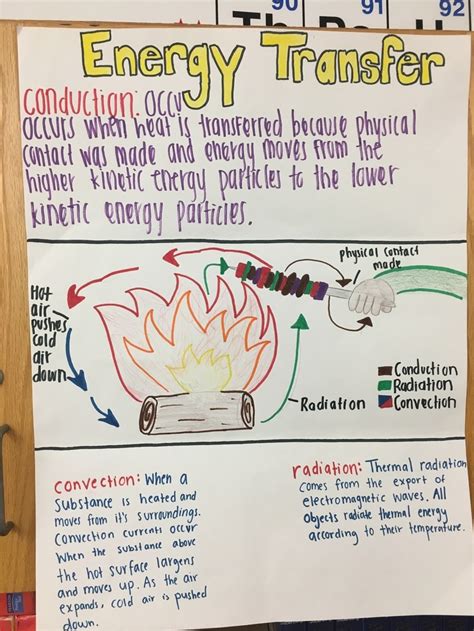 90
91
92
Th
Energy Transfer
conduction: occu
occurs when heat is transferred because physical
contact was made and energy moves from the
higher kinetic energy particles to the lower
kinetic energy particles.
physical contact
made
Hot
air
pushes
cold
air
down
Conduction
Radiation
Convection
Radiation
convection: When a
substance is heated and
moves from it's surroundings.
Convection currents occur
when the substance above
the hot surface largens
and moves up. As the air
expands, cold air is pushed
down.
radiation: Thermal radiation
comes from the export of
electromagnetic waves. All
objects radiate thermal energy
according to their temperature.